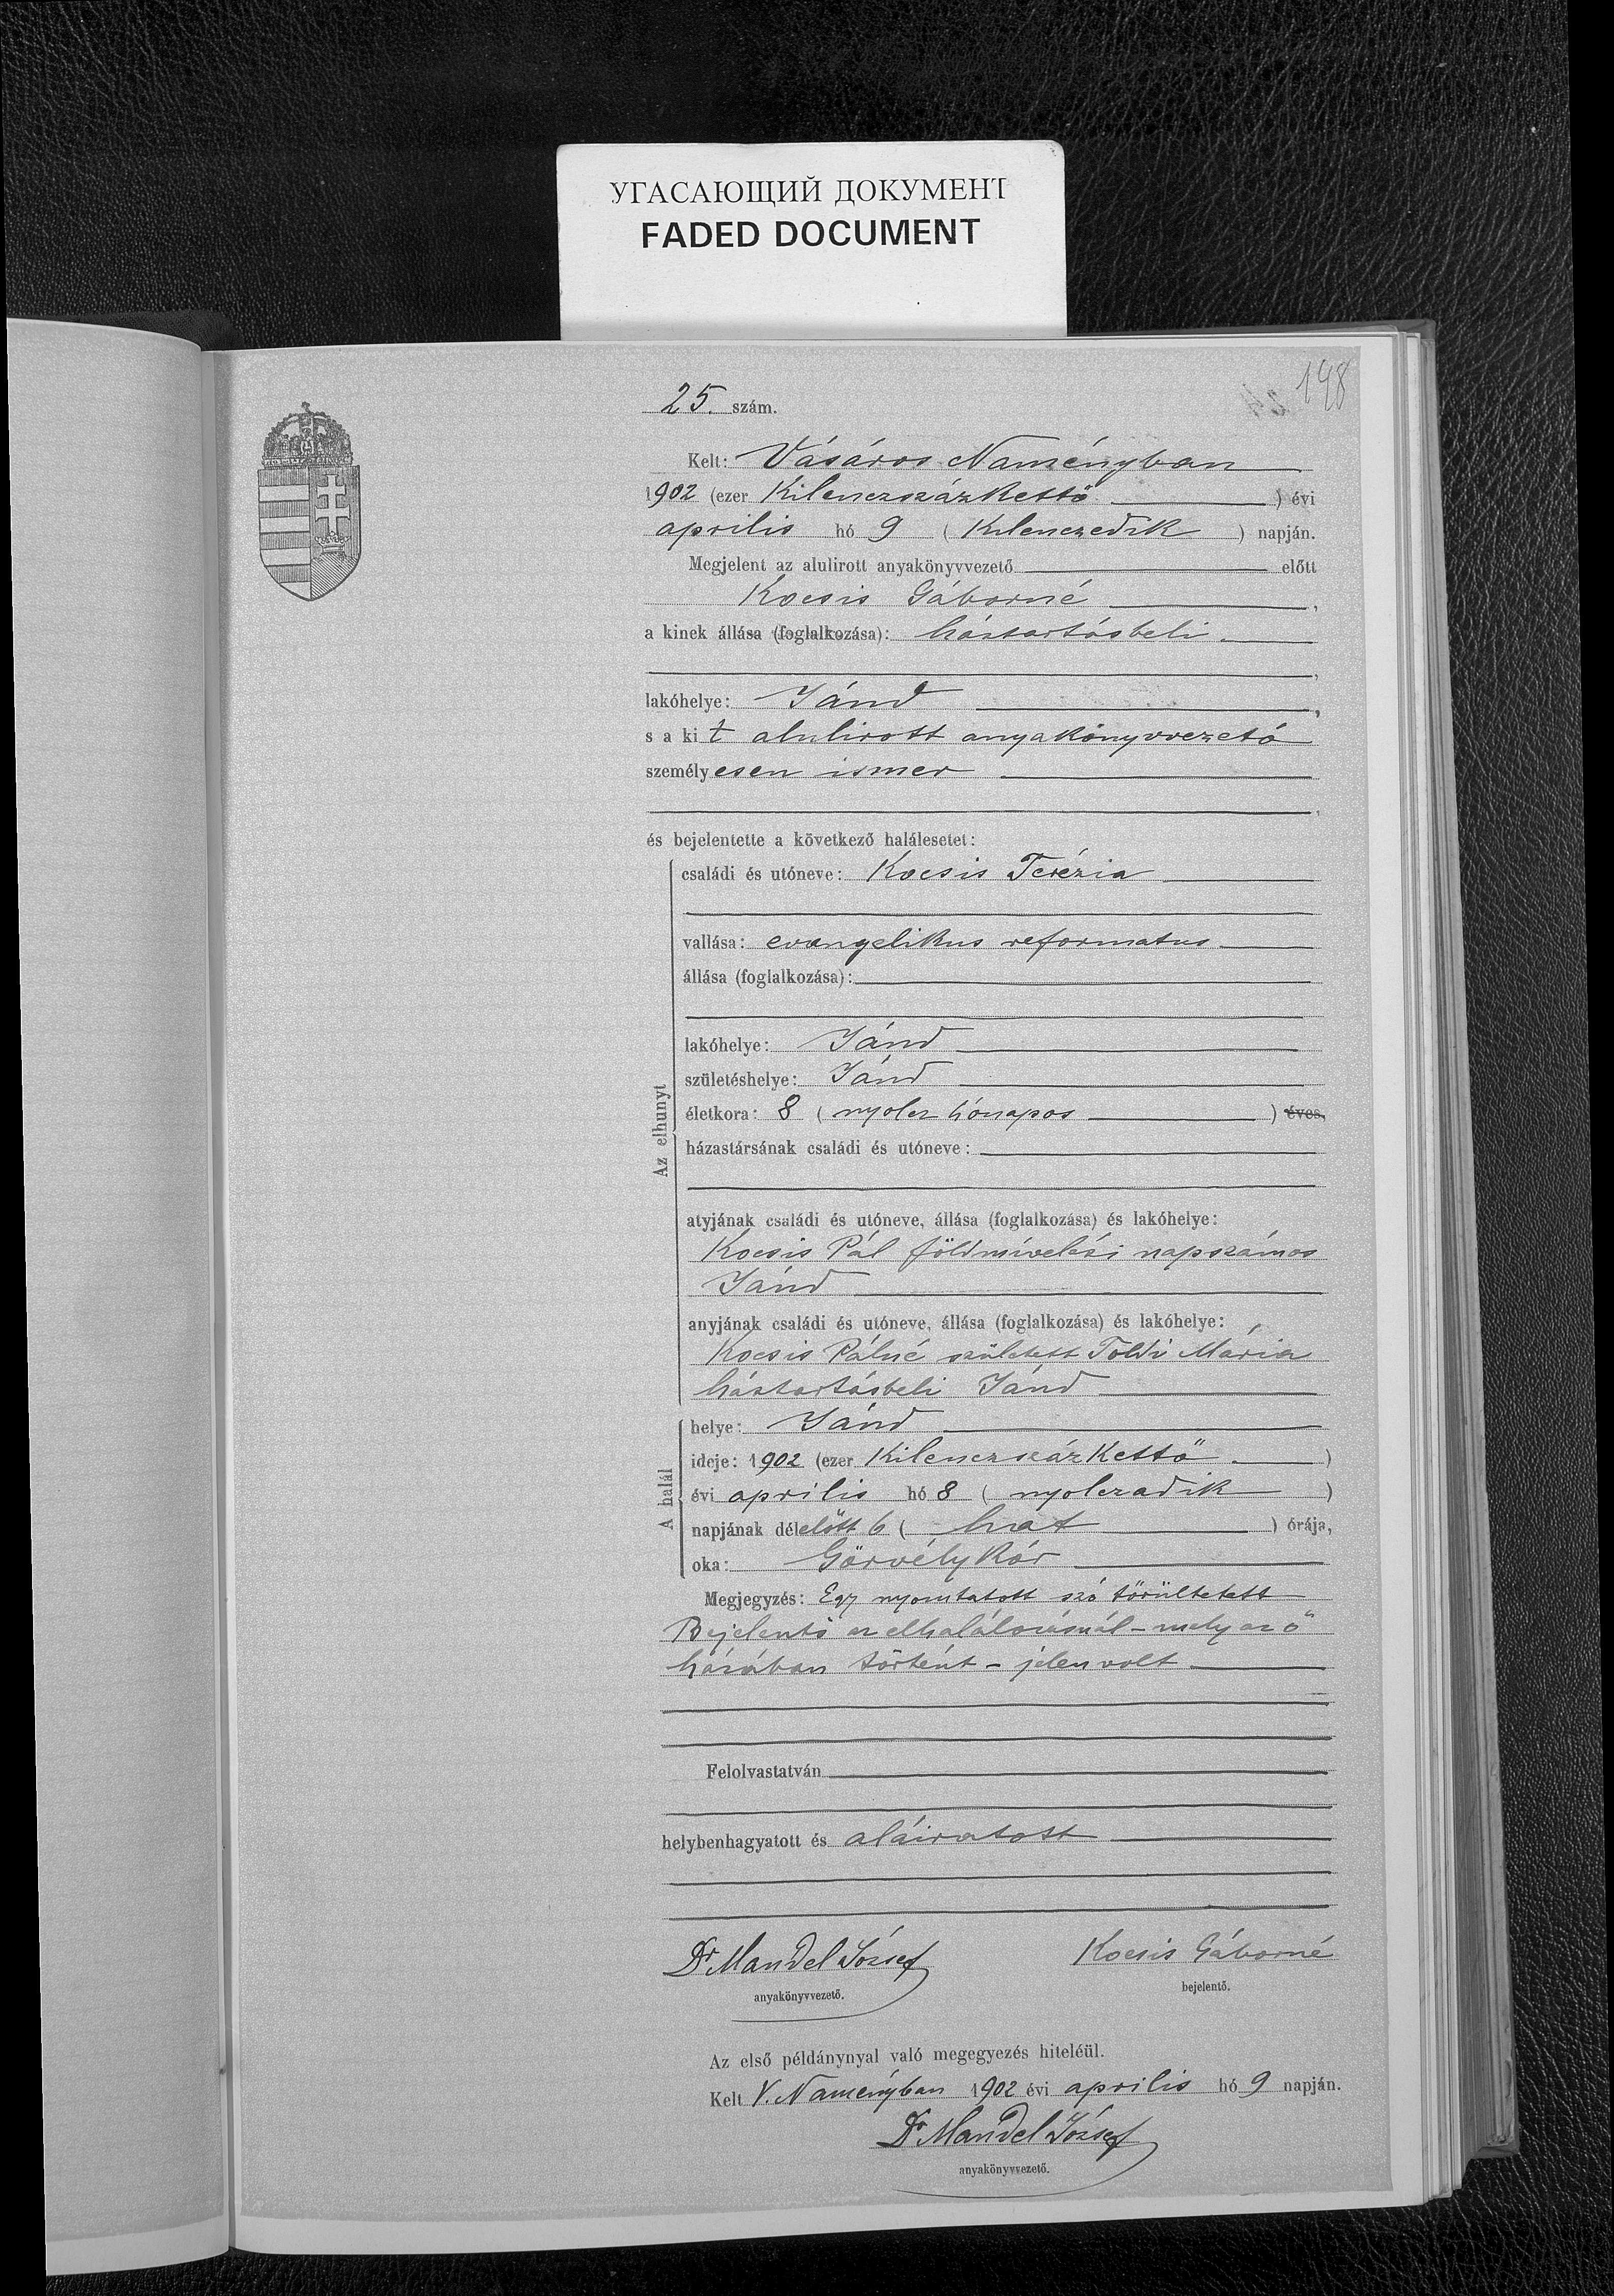 УГАСАЮЩИЙ ДОКУМЕНТ
FADED DOCUMENT
198
25. szám.
Kelt: Vásáros-Naményban
1902 (ezer Kilenczszázkettő ) évi
április hó 9 ( Kilenczedik ) napján.
Megjelent az alulirott anyakönyvvezető előtt
Kocsis Gáborné ,
a kinek állása (foglalkozása): háztartásbeli
,
lakóhelye: Jánd ,
s a kit alulirott anyakönyvvezető
személyesen ismer
,
és bejelentette a következő halálesetet:
Az elhunyt
családi és utóneve: Kocsis Terézia
vallása: evangelikus reformatus
állása (foglalkozása):
lakóhelye: Jánd
születéshelye: Jánd
életkora: 8 ( nyolcz hónapos ) éves,
házastársának családi és utóneve:
atyjának családi és utóneve, állása (foglalkozása) és lakóhelye:
Kocsis Pál földmívelési napszámos
Jánd
anyjának családi és utóneve, állása (foglalkozása) és lakóhelye:
Kocsis Pálné született Toldi Mária
háztartásbeli Jánd
A halál
helye: Jánd
ideje: 1902 (ezer Kilenczszázkettő )
évi április hó 8 ( nyolczadik )
napjának délelőtt 6 ( hat ) órája,
oka: Görvélykór
Megjegyzés: Egy nyomtatott szó törültetett
Bejelentő az elhalálozásnál - mely az ő
házában történt - jelen volt
Felolvastatván
helybenhagyatott és aláiratott
Dr Mandel József
anyakönyvvezető.
Kocsis Gáborné
bejelentő.
Az első példánynyal való megegyezés hiteléül.
Kelt V. Naményban 1902 évi április hó 9 napján.
Dr Mandel József
anyakönyvvezető.